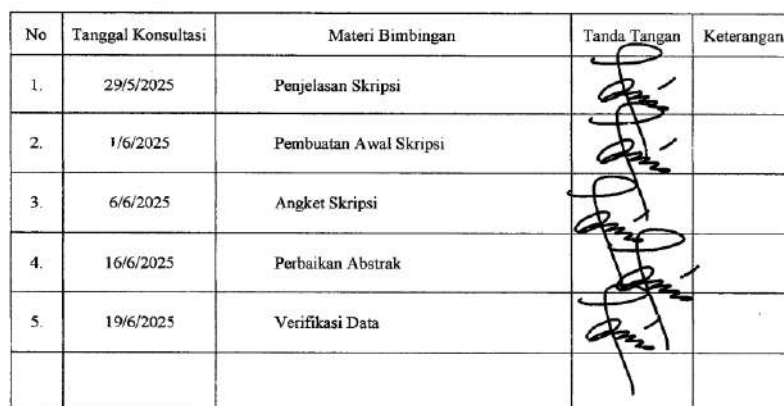 No Tanggal Konsultasi Materi Bimbingan Tanda Tangan Keterangan
1. 29/5/2025 Penjelasan Skripsi
2. 1/6/2025 Pembuatan Awal Skripsi
3. 6/6/2025 Angket Skripsi
4. 16/6/2025 Perbaikan Abstrak
5. 19/6/2025 Verifikasi Data